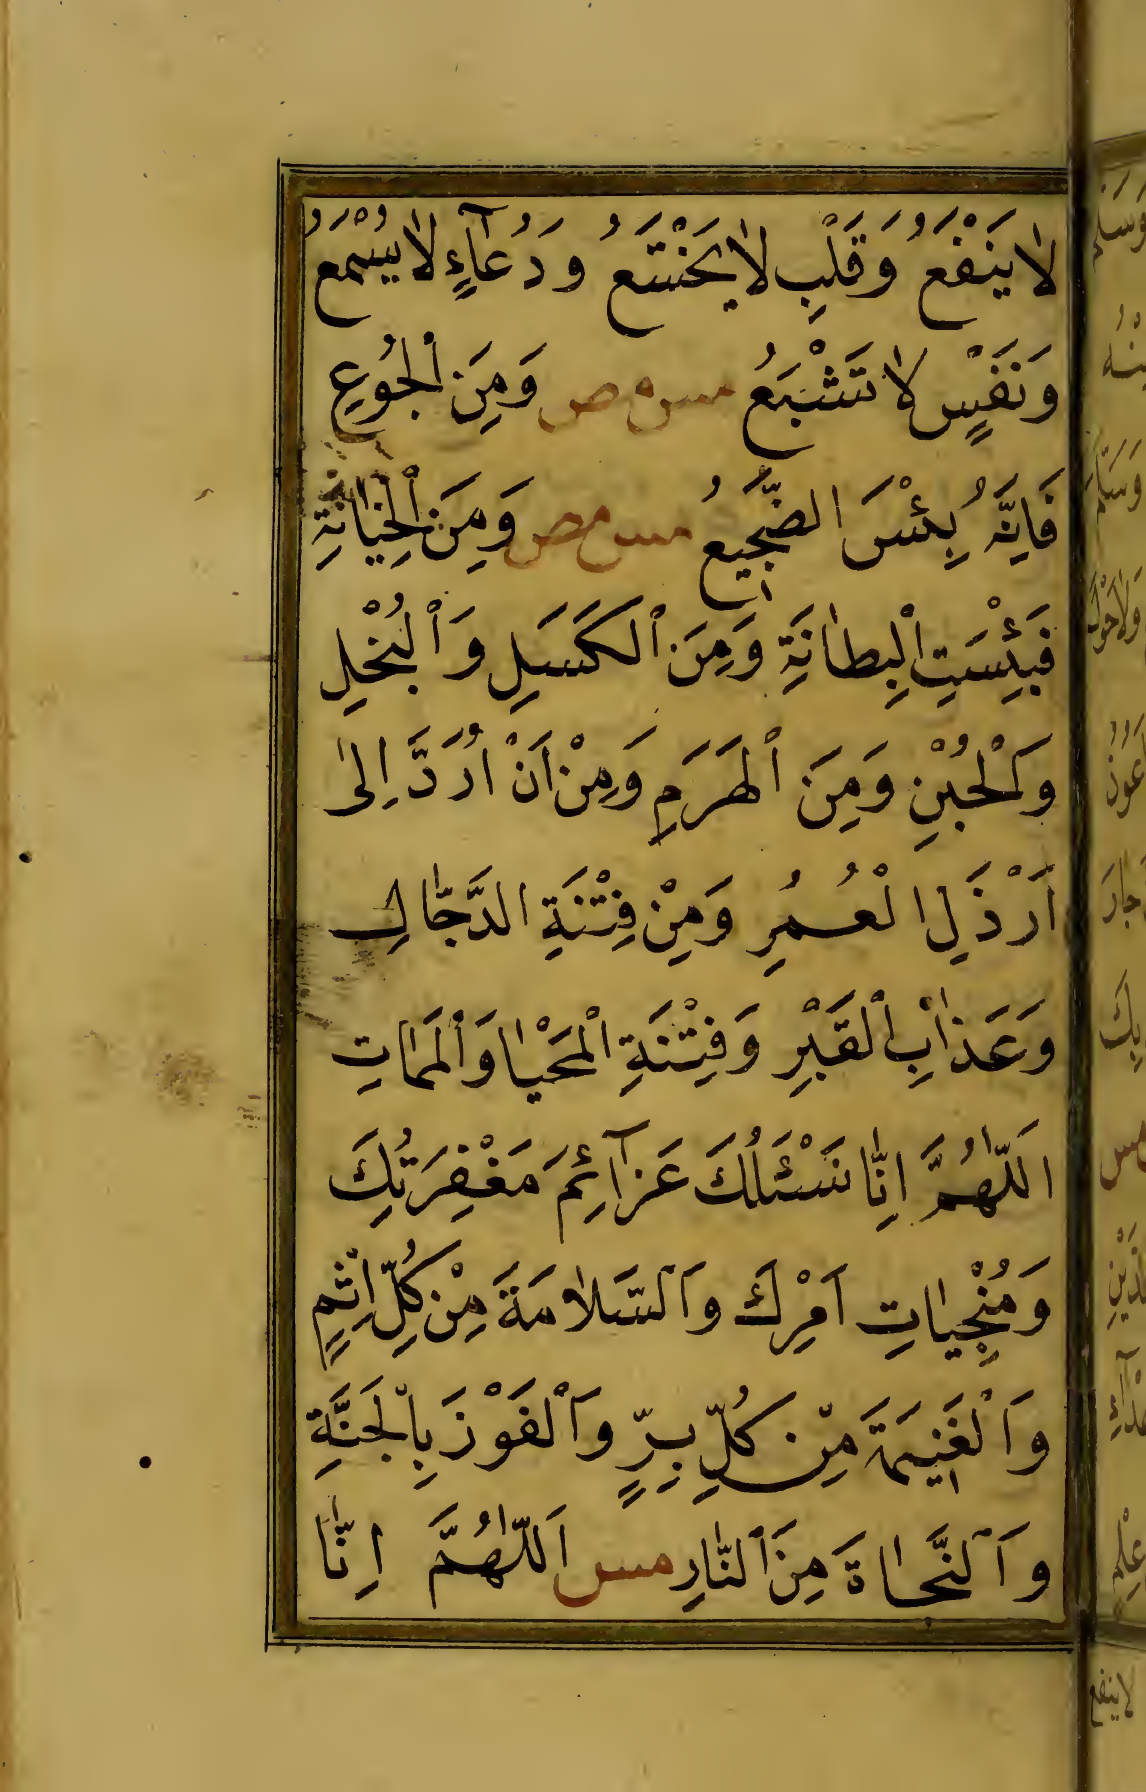 لَا يَنْفَعُ وَقَلْبٍ لَا يَخْشَعُ وَدُعَآءٍ لَا يُسْمَعُ
وَنَفْسٍ لَا تَشْبَعُ مس مص وَمِنَ الْجُوعِ
فَاِنَّهُ بِئْسَ الضَّجِيعُ مس مص وَمِنَ الْخِيَانَةِ
فَبِئْسَتِ الْبِطَانَةِ وَمِنَ الْكَسَلِ وَالْبُخْلِ
وَالْجُبْنِ وَمِنَ الْهَرَمِ وَمِنْ اَنْ اُرَدَّ اِلٰى
اَرْذَلِ الْعُمُرِ وَمِنْ فِتْنَةِ الدَّجَّالِ
وَعَذَابِ الْقَبْرِ وَفِتْنَةِ الْمَحْيَا وَالْمَمَاتِ
اَللّٰهُمَّ اِنَّا نَسْئَلُكَ عَزَآئِمَ مَغْفِرَتِكَ
وَمُنْجِيَاتِ اَمْرِكَ وَالسَّلَامَةَ مِنْ كُلِّ اِثْمٍ
وَالْغَنِيمَةَ مِنْ كُلِّ بِرٍّ وَالْفَوْزَ بِالْجَنَّةِ
وَالنَّجَاةَ مِنَ النَّارِ مس اَللّٰهُمَّ اِنَّا
لاينفع